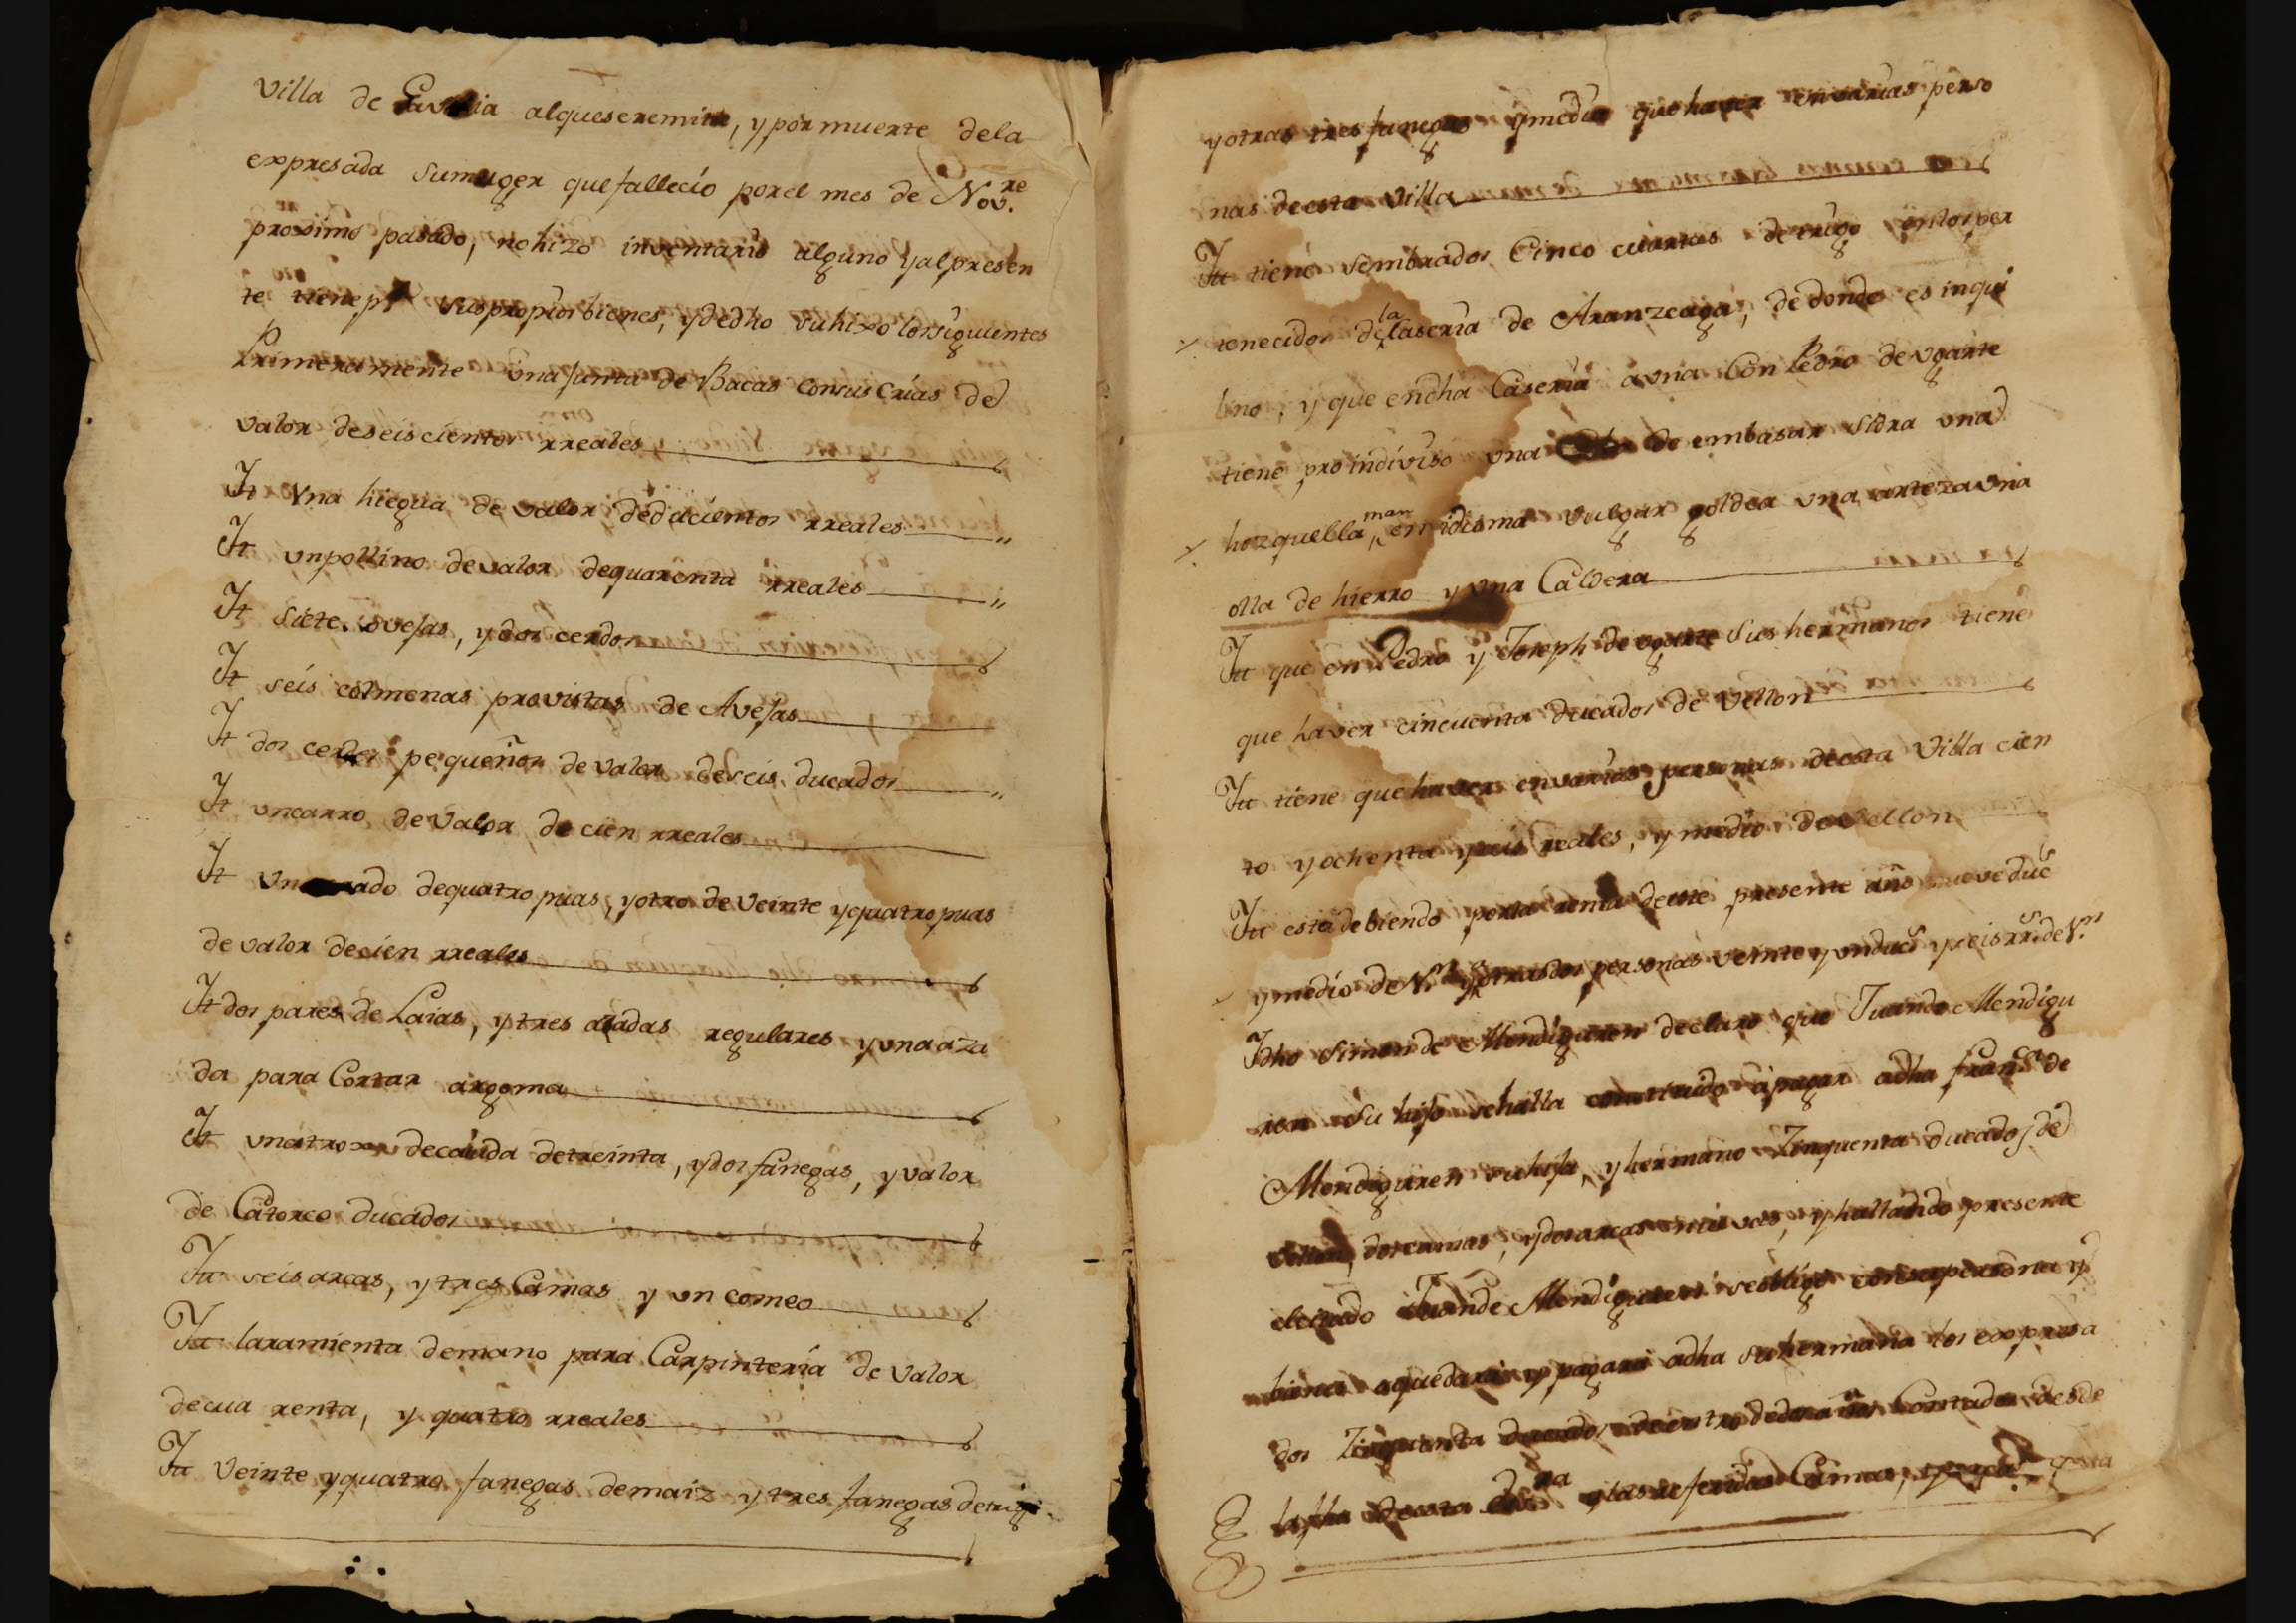 villa de alqueseremite, y por muerte dela
expresada sumuger quefallecio porel mes de Nov.re
proximo pasado, nohizo inventario alguno yalpresen
te tiene pr suspropios bienes, ydedho suhixo lossiguientes
Primeramente vna Junta de Bacas consus Crias de
valor deseiscientos rreales
It Vna hiegua de valor deducientos rreales
It vnpollino devalor dequarenta rreales
It siete ovejas, ydos cerdos
It seis colmenas provistas de Avejas
It dos cerdos pequeños devalor deseis ducados
It vncarro de valor de cien rreales
It vn dequatro puas, yotro de veinte yquatro puas
de valor decien rreales
It dos pares de Laias, ytres asadas regulares yvna aza
da para Cortar argoma
It vnatrox decavida detreinta, ydos fanegas, yvalor
de Catorce ducados
Itt seis arcas, ytres Camas y vn comeo
Itt laramienta demano para Carpinteria de valor
decua renta, y quatro rreales
Itt veinte yquatro fanegas demaiz ytres fanegas detrigo
yotras tres fanegas ymedia quehaver envarias perso
nas deesta villa
Itt tiene sembrados Cinco cuartas detrigo enlos per
tenecidos de la Caseria de Aranzeaga, dedonde es inqui
lino, y que endha Caseria avna Con Pedro de vgarte
tiene pro indiviso vna de embasar sidra vna
hoz quebla man, en idioma vulgar goldea vna arteza vna
olla de hierro y vna Caldera
Itt que en Pedro y Joseph de vgarte sus hermanos tiene
que haver cincuenta ducados de vellon
Itt tiene quehaver envarias personas deesta Villa cien
to yochenta yseis reales, y medio de vellon
Itt esta debiendo porla renta deeste presente año nueve ducs
ymedio de Vn yaotrasdos personas veinte yvnducs yseis rrs. de Vn
Idho Simon de Mendiguren declaro que Juande Mendigu
ren su hijo sehalla constituido apagar adha Franca de
Mendiguren suhija, yhermano Zinquenta ducados de
vellon, doscamas, ydosarcas nuevas, yhallandido presente
elcitado Juande Mendiguren seobligo consupersona y
bienes aquedara y pagara adha suhermana los expresa
dos Zinquenta ducados deentro dedosaños Contados desde
lafha deesta ylasreferidas Camas,